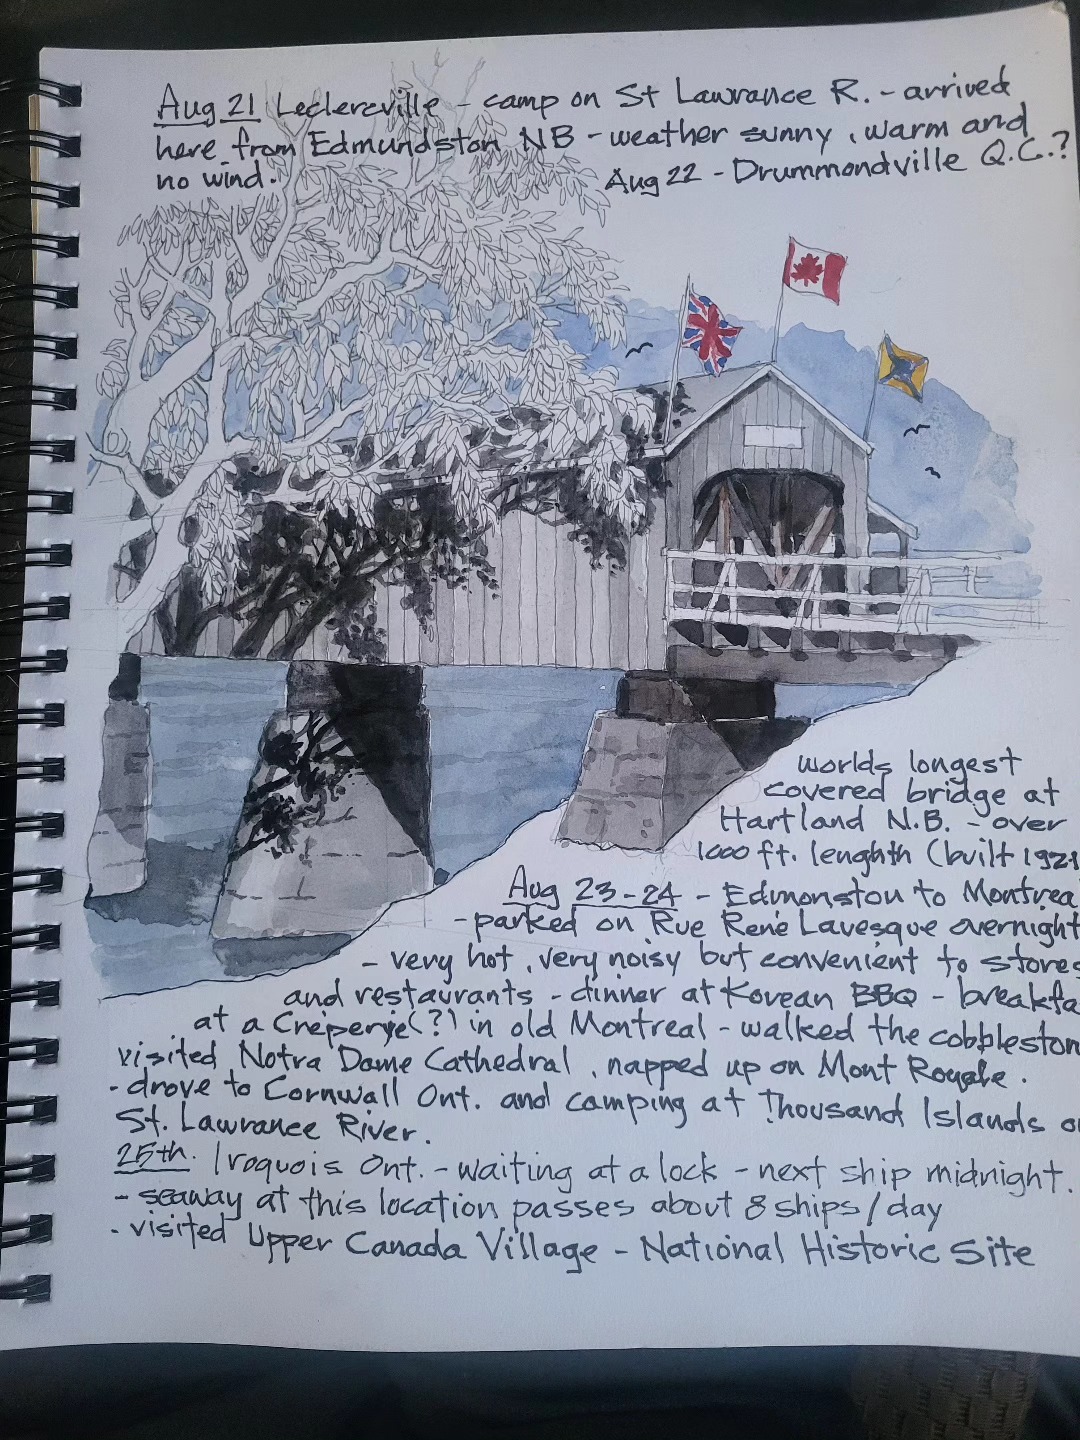 Aug 21 Leclercville - camp on St Lawrance R. - arrived
here from Edmundston NB - weather sunny, warm and
no wind.
Aug 22 - Drummondville Q.C.?
worlds longest
covered bridge at
Hartland N.B. - over
1000 ft. lenghth (built 1921
Aug 23-24 - Edmonston to Montrea
- parked on Rue René Lavesque overnight
- very hot, very noisy but convenient to stores
and restaurants - dinner at Korean BBQ - breakfa
at a Crêperye(?) in old Montreal - walked the cobbleston
visited Notra Dame Cathedral, napped up on Mont Royale.
- drove to Cornwall Ont. and camping at Thousand Islands o
St. Lawrance River.
25th. Iroquois Ont. - waiting at a lock - next ship midnight.
- seaway at this location passes about 8 ships/day
- visited Upper Canada Village - National Historic Site